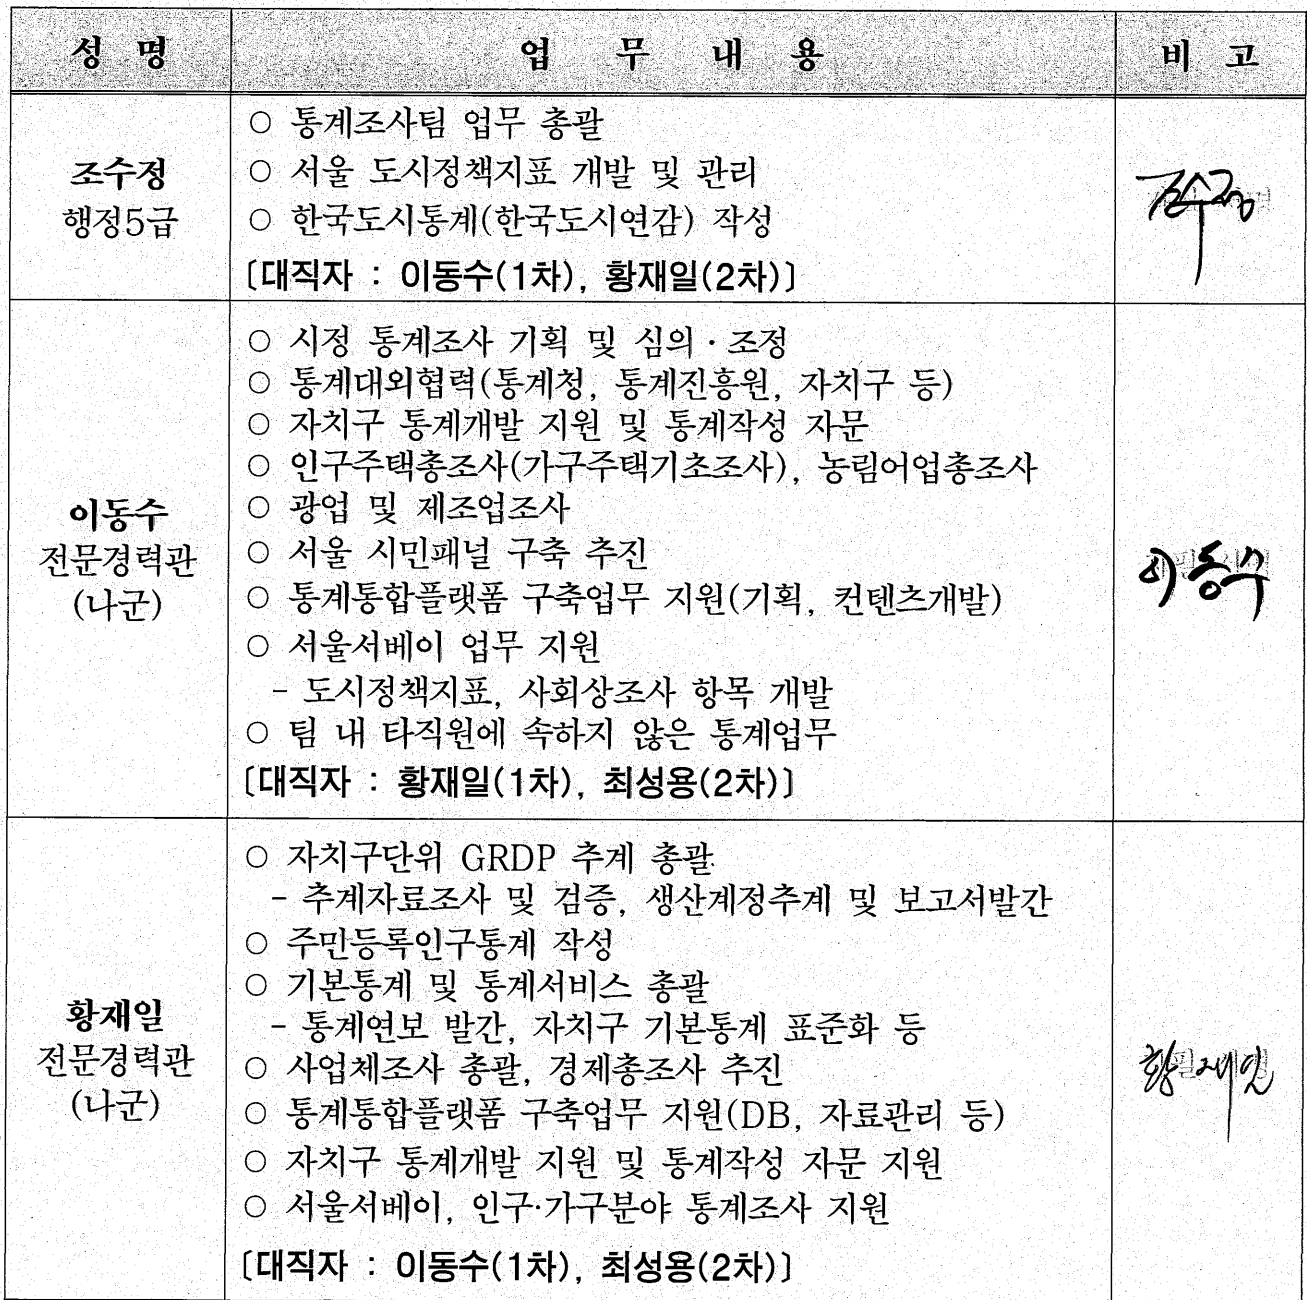 성 명 업 무 내 용 비 고
조수정
행정5급
○ 통계조사팀 업무 총괄
○ 서울 도시정책지표 개발 및 관리
○ 한국도시통계(한국도시연감) 작성
〔대직자 : 이동수(1차), 황재일(2차)〕
조수정
이동수
전문경력관
(나군)
○ 시정 통계조사 기획 및 심의·조정
○ 통계대외협력(통계청, 통계진흥원, 자치구 등)
○ 자치구 통계개발 지원 및 통계작성 자문
○ 인구주택총조사(가구주택기초조사), 농림어업총조사
○ 광업 및 제조업조사
○ 서울 시민패널 구축 추진
○ 통계통합플랫폼 구축업무 지원(기획, 컨텐츠개발)
○ 서울서베이 업무 지원
- 도시정책지표, 사회상조사 항목 개발
○ 팀 내 타직원에 속하지 않은 통계업무
〔대직자 : 황재일(1차), 최성용(2차)〕
이동수
황재일
전문경력관
(나군)
○ 자치구단위 GRDP 추계 총괄
- 추계자료조사 및 검증, 생산계정추계 및 보고서발간
○ 주민등록인구통계 작성
○ 기본통계 및 통계서비스 총괄
- 통계연보 발간, 자치구 기본통계 표준화 등
○ 사업체조사 총괄, 경제총조사 추진
○ 통계통합플랫폼 구축업무 지원(DB, 자료관리 등)
○ 자치구 통계개발 지원 및 통계작성 자문 지원
○ 서울서베이, 인구·가구분야 통계조사 지원
〔대직자 : 이동수(1차), 최성용(2차)〕
황재일